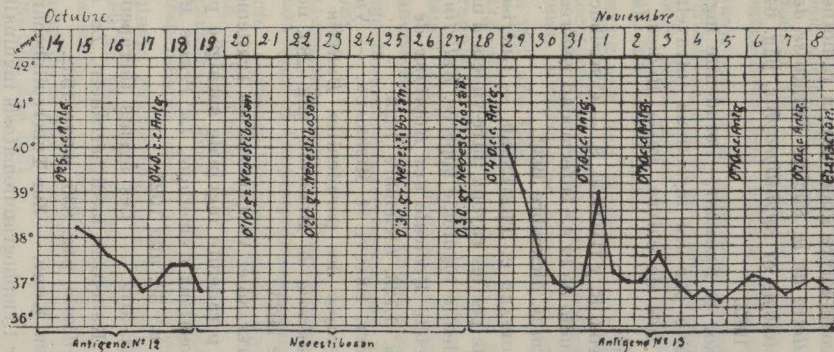 Octubre. Noviembre
temper. 14 15 16 17 18 19 20 21 22 23 24 25 26 27 28 29 30 31 1 2 3 4 5 6 7 8
42°
41°
40°
39°
38°
37°
36°
0'25.c.c.Antg.
0'40.c.c.Antg.
0'10.gr.Neoestibosan.
0'20.gr.Neoestibosan.
0'30.gr.Neoestibosan.
0.30.gr.Neoestibosan.
0'40.c.c.Antg.
0'70.c.c.Antg.
0'70.c.c.Antg.
0'70.c.c.Antg
0'70.c.c.Antg.
Curación.
Antigeno. Nº 12 Neoestibosan Antigeno Nº 13